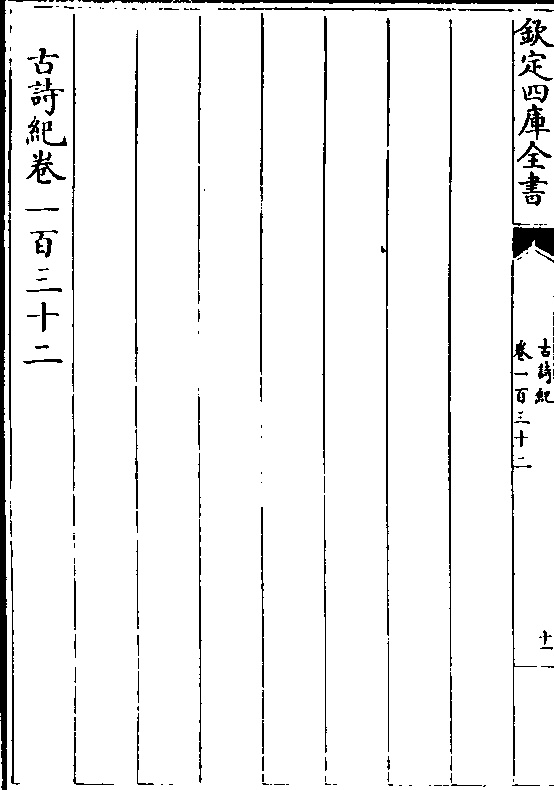 欽定四庫全書
古詩紀
卷一百三十二
十一
古詩紀卷一百三十二